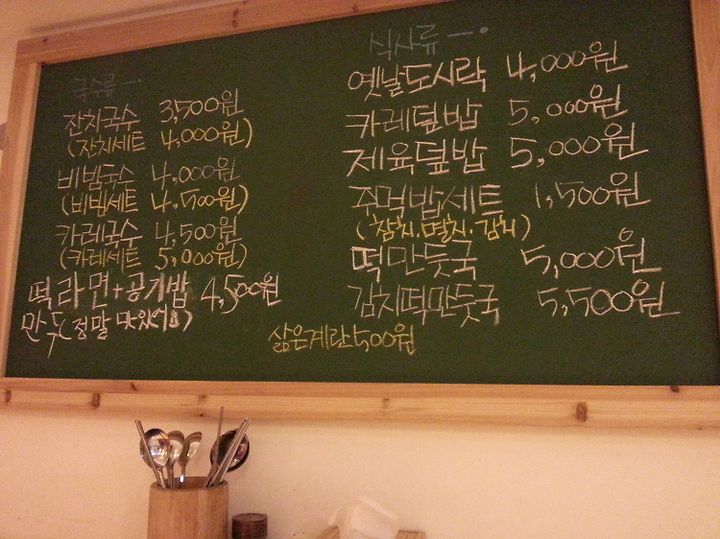 국수류 ー·
잔치국수 3,500원
(잔치세트 4,000원)
비빔국수 4,000원
(비빔세트 4,500원)
카레국수 4,500원
(카레세트 5,000원)
떡라면+공기밥 4,500원
만두(정말 맛있어요)
식사류 ー·
옛날도시락 4,000원
카레덮밥 5,000원
제육덮밥 5,000원
주먹밥세트 1,500원
(참치·멸치·김치)
떡만둣국 5,000원
김치떡만둣국 5,500원
삶은계란 500원